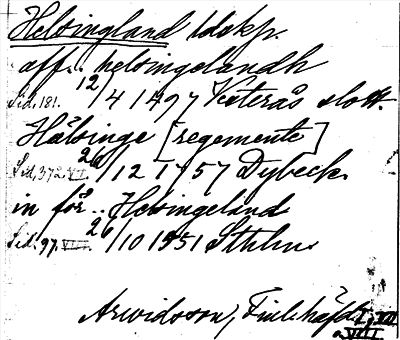 Helsingland ldskp.
aff.. helsingelandh
Sid. 181. 12/4 1497 Västerås slott.
Hälsinge [regemente]
Sid. 372. VII. 26/12 1757 Dybeck.
in för.. Helsingeland
Sid. 97. VIII. 26/10 1551 Sthlm.
Arwidsson, Finl. häfd. I, VII
o. VIII